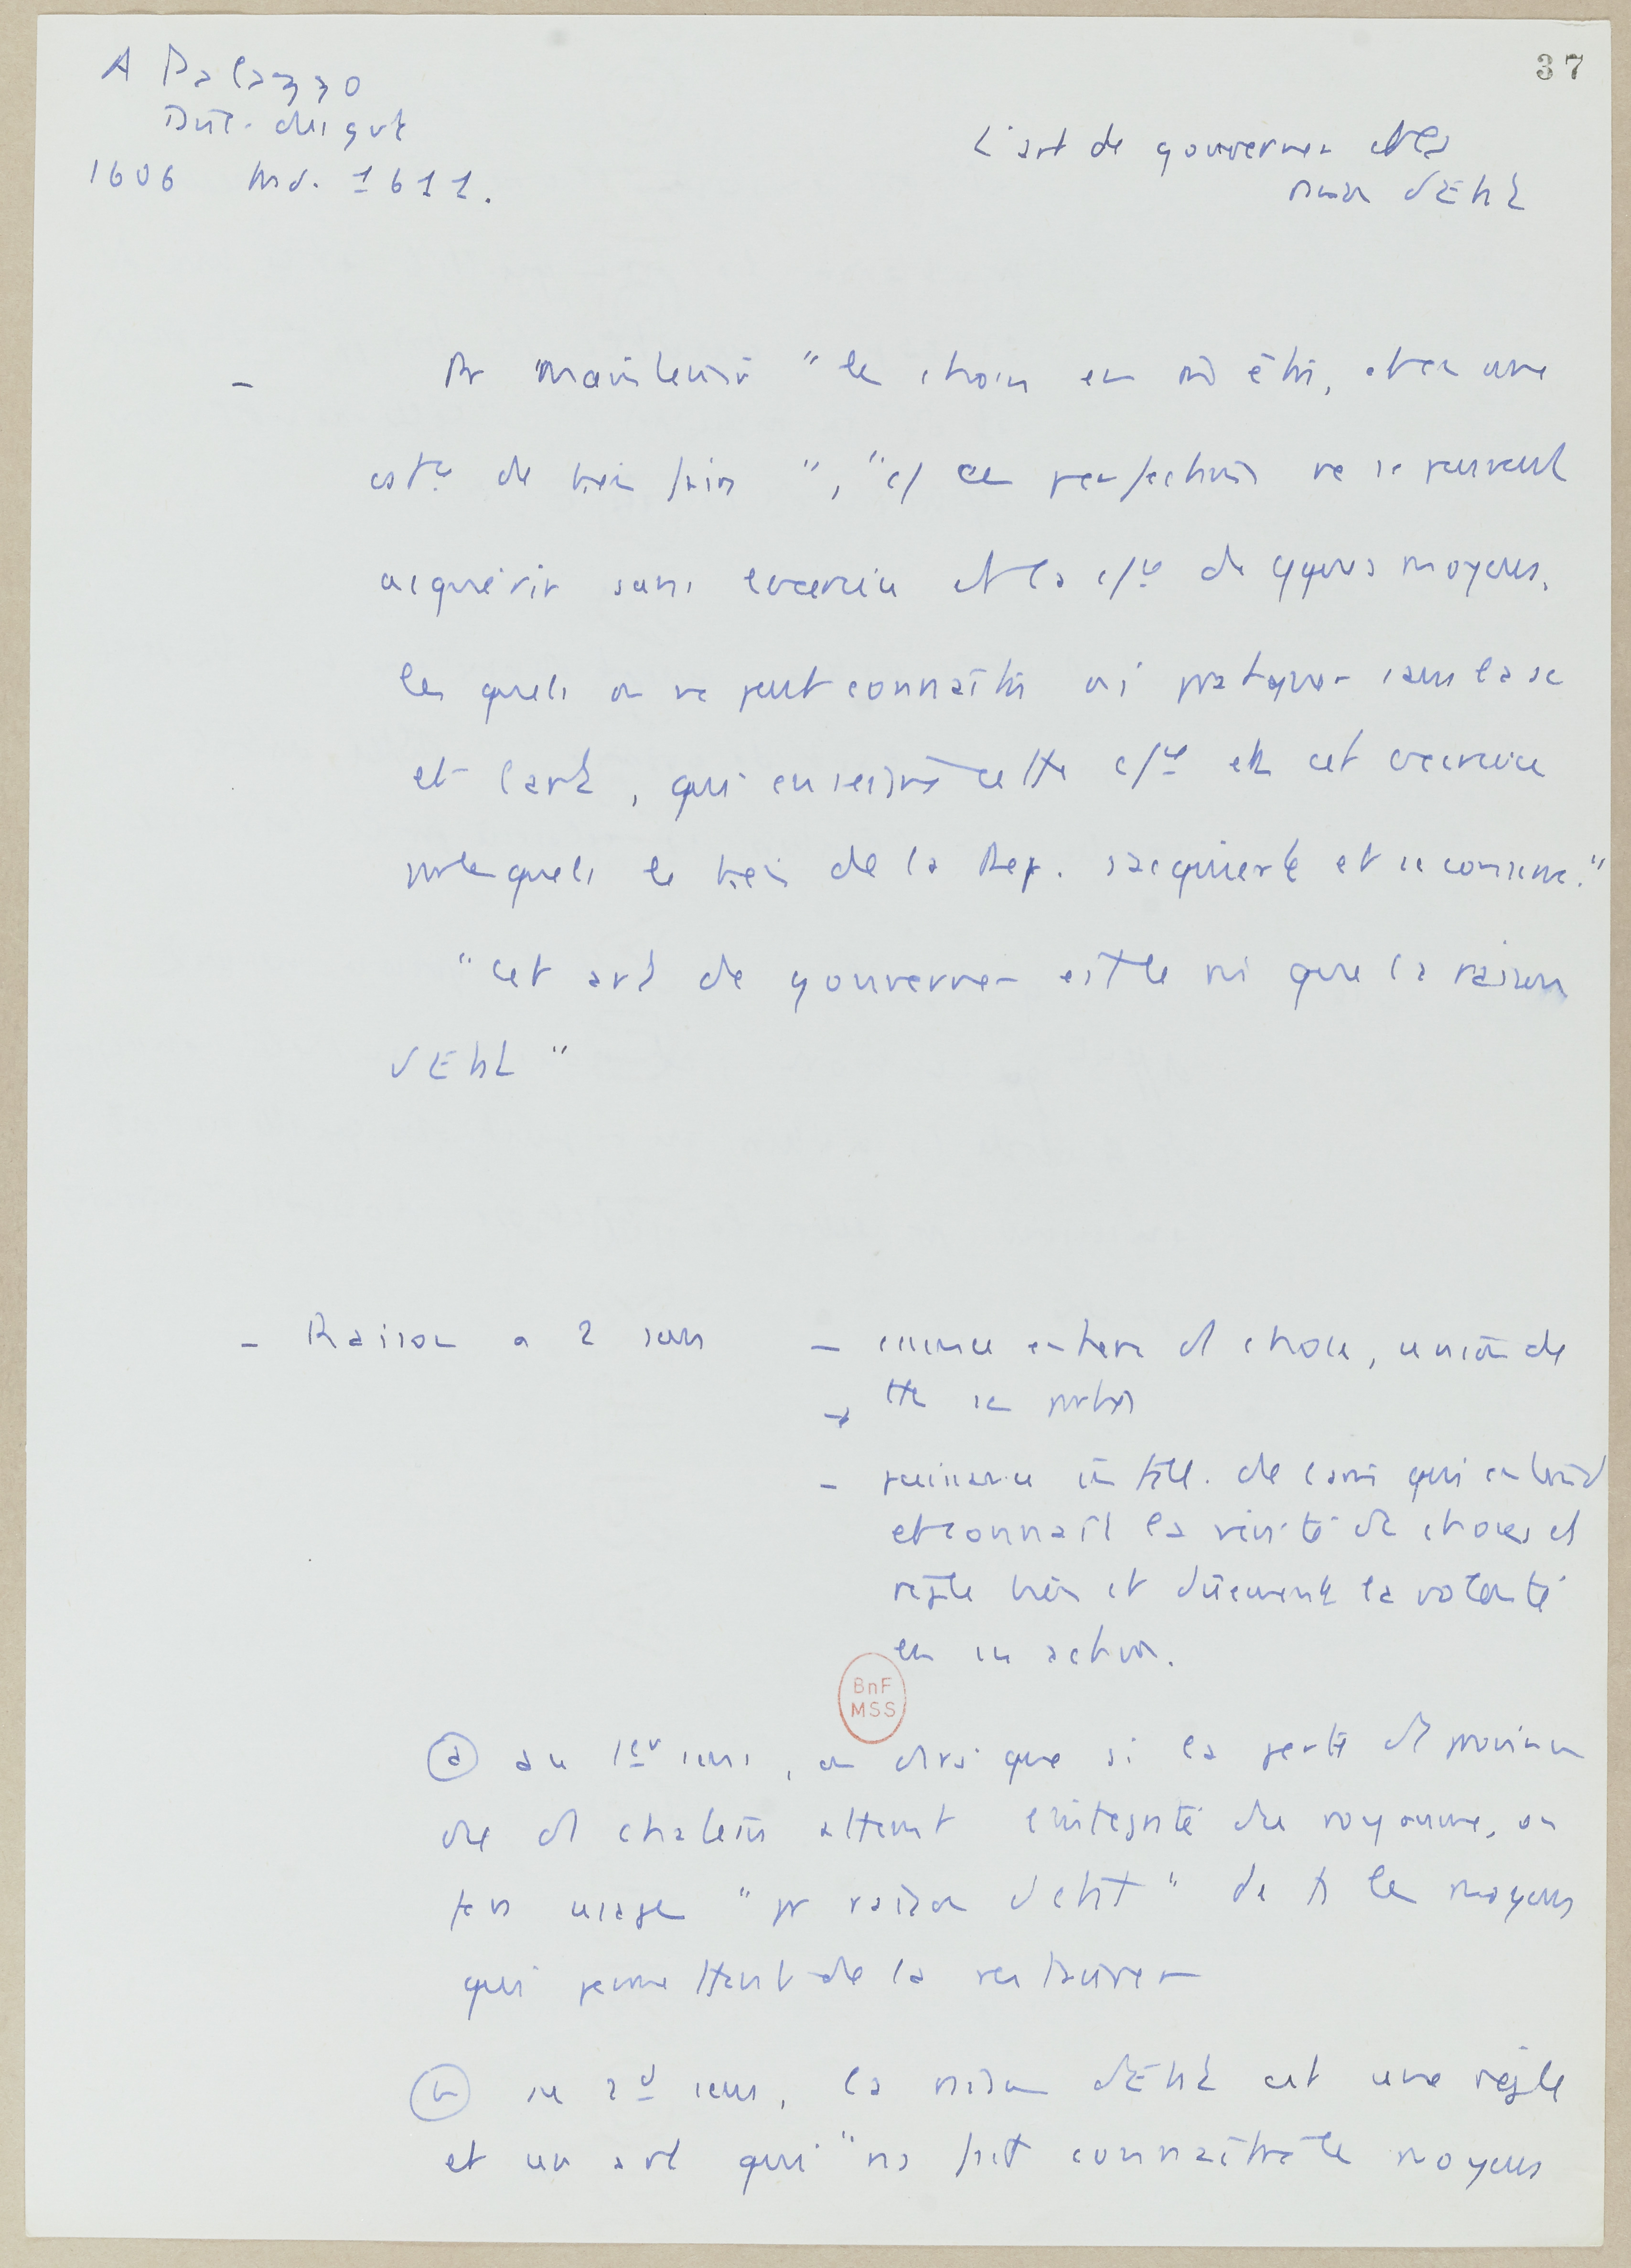 37
A Palazzo
Disc. du gvt
1606 trad. 1611.
L'art de gouverner et la
raison d'État
- Pr maintenir "les choses en m̄ être, avec une
de bien faire", "et ces perfections ne se peuvent
acquérir sans exercice et la cf^ce de qques moyens,
lesquels on ne peut connaître ni pratiquer sans la sc
et l'art, qui enseigne cette cf^ce et cet exercice
par lesquels le bien de la Rep. s'acquiert et se conserve."
"Cet art de gouverner est le m̄ que la raison
d'État"
- Raison a 2 sens
- essence entière des choses, union de
ttes ses parties
- puissance intell. de l'âme qui entend
et connaît la vérité des choses et
règle bien et dûement la volonté
en ses actions.
(a) au 1er sens, on dira que si la perte des provinces
des chateaux atteint l'intégrité du royaume, on
fera usage "pr raison d'état" de ts les moyens
qui permettent de la restaurer
(b) au 2d sens, la raison d'État est une règle
et un art qui "ns fait connaître les moyens
BnF
MSS